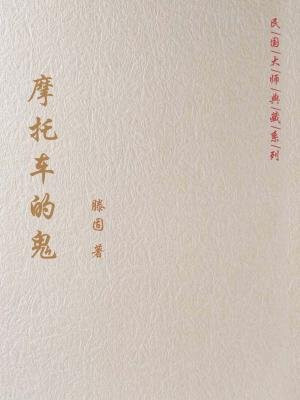 民/国/大/师/典/藏/系/列
摩托车的鬼
滕固 著